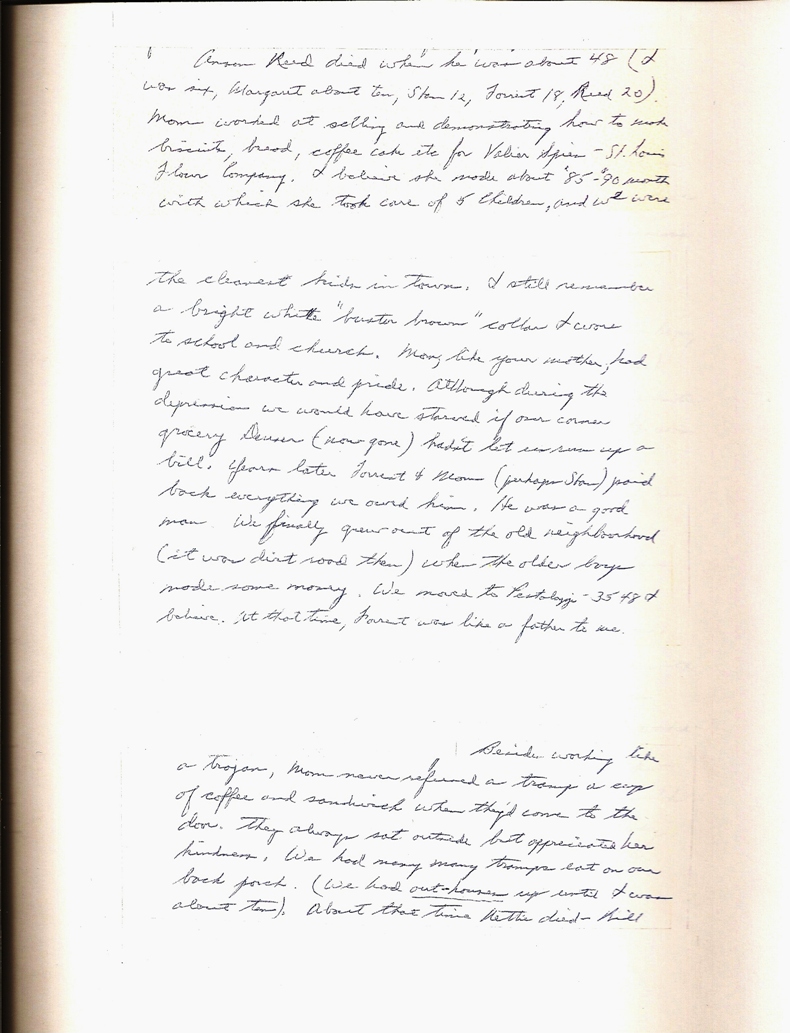 Anson Reed died when he was about 48 (I
was six, Margaret about ten, Stan 12, Forrest 18, Reed 20).
Mom worked at selling and demonstrating how to make
biscuits, bread, coffee cake etc for Valier Spies - St. Louis
Flour Company. I believe she made about $85-$90 month
with which she took care of 5 Children, and we were
the cleanest kids in town. I still remember
a bright white "buster brown" collar I wore
to school and church. Mom, like your mother, had
great character and pride. Although during the
depression we would have starved if our corner
grocery (now gone) hadn't let us run up a
bill. Years later Forrest & Mom (perhaps Stan) paid
back everything we owed him. He was a good
man. We finally grew out of the old neighbourhood
(it was dirt road then) when the older boys
made some money. We moved to Pestalozzi - 3548 I
believe. At that time, Forrest was like a father to me.
Besides working like
a trojan, Mom never refused a tramp a cup
of coffee and sandwich when they'd come to the
door. They always sat outside but appreciated her
kindness. We had many many tramps eat on our
back porch. (We had out-houses up until I was
about ten). About that time Nettie died - Bill